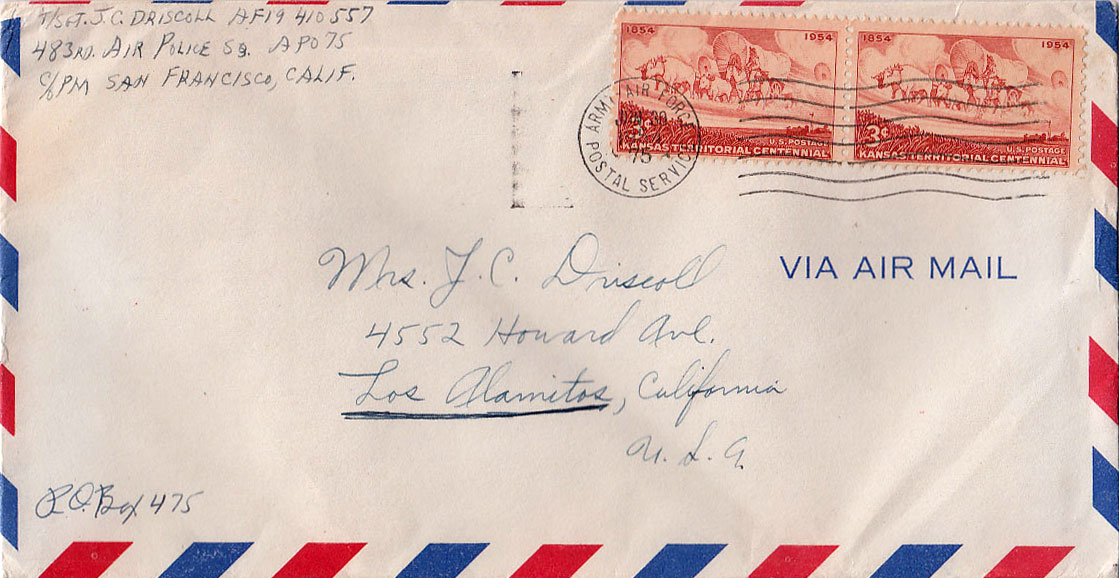 T/SGT. J.C. DRISCOLL AF19 410 557
483RD. AIR POLICE SQ. APO 75
C/O PM SAN FRANCISCO, CALIF.
1854 1954
3¢ U.S. POSTAGE
KANSAS TERRITORIAL CENTENNIAL
1854 1954
3¢ U.S. POSTAGE
KANSAS TERRITORIAL CENTENNIAL
ARMY-AIR FORCE
POSTAL SERVICE
75
VIA AIR MAIL
Mrs. J. C. Driscoll
4552 Howard Ave.
Los Alamitos, California
U. S. A.
P.O. Box 475